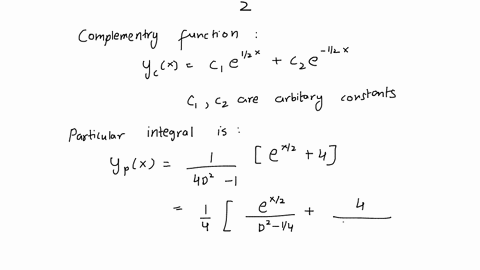 2
Complementry function :
y_c(x) = c_1 e^{1/2 x} + c_2 e^{-1/2 x}
c_1 , c_2 are arbitary constants
Particular integral is :
y_p(x) = \frac{1}{4D^2 - 1} [ e^{x/2} + 4 ]
= \frac{1}{4} [ \frac{e^{x/2}}{D^2 - 1/4} + \frac{4}{}